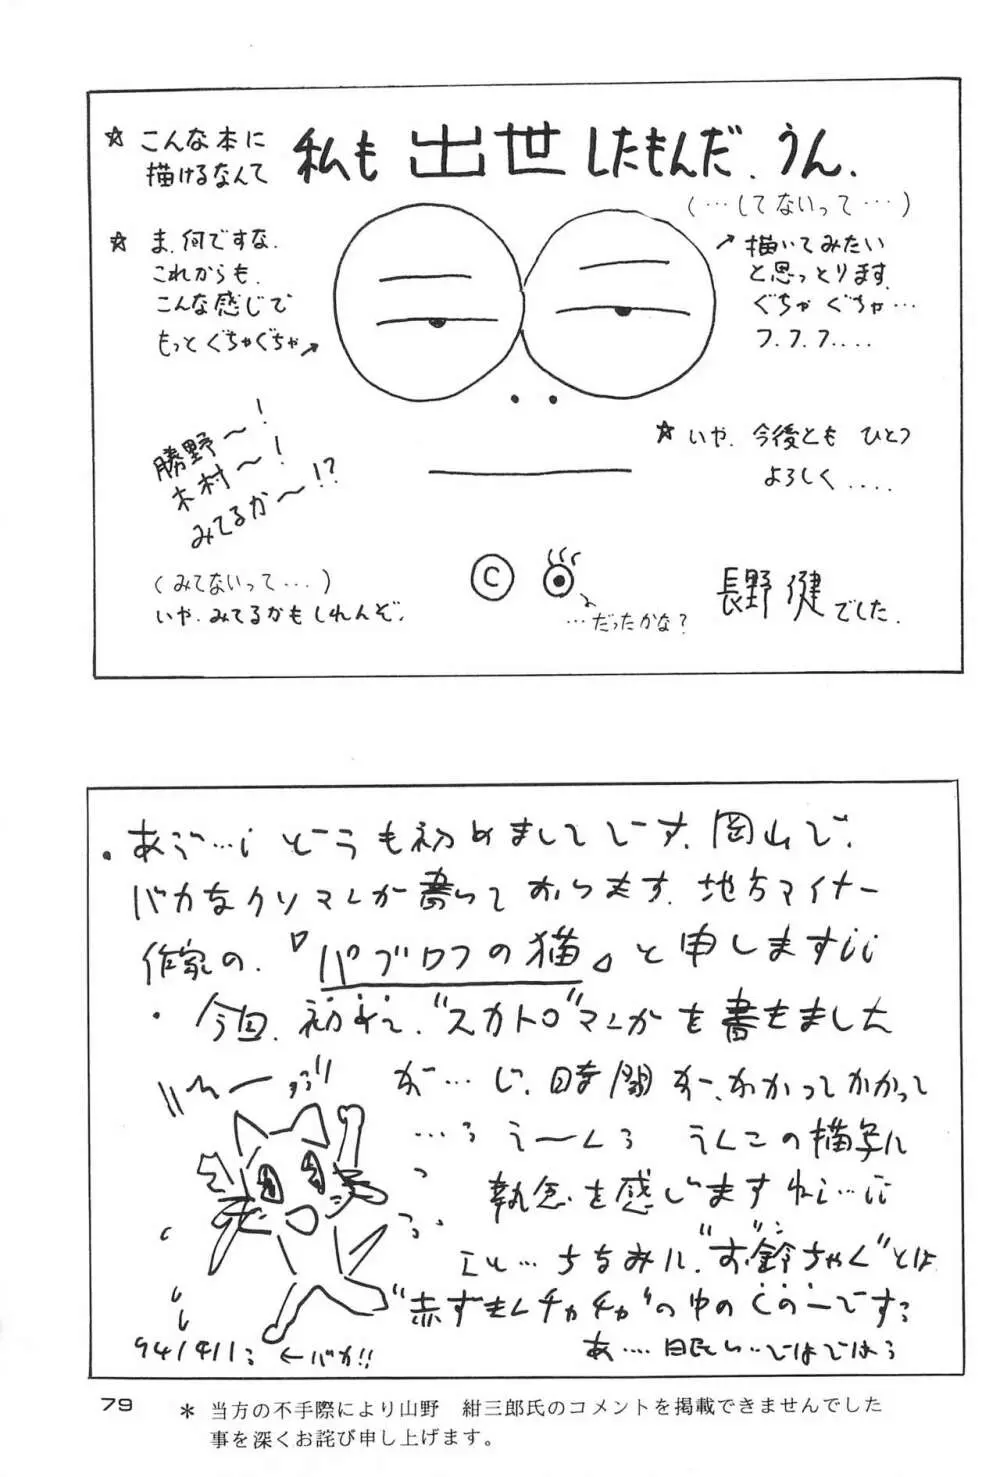 ☆ こんな本に
描けるなんて
私も出世したもんだ、うん、
(…してないって…)
☆ ま、何ですな、
これからも、
こんな感じで
もっとぐちゃぐちゃ↗
↗描いてみたい
と思っとります
ぐちゃぐちゃ…
フ、フ、フ、...
☆ いや、今後とも ひとつ
よろしく ....
勝野〜!
木村〜!
みてるか〜!?
(みてないって...)
いや、みてるかもしれんぞ、
©
…だったかな?
長野 健でした。
・あう…¡ どうも初めましてです、岡山で、
バカなクソマンガ書いております、地方マイナー
作家の、『パブロフの猫』と申します¡¡
・今回、初めて、"スカトロ"マンガを書きました
が…し、時間が、かかって
えーんく
うんこの描写に
執念を感じますね¡…¡¡
えと…ちなみに、"お鈴ちゃん"とは
"赤ずきんチャチャ"の中のしいの一です。
あ....眠い..ではでは。
94/4/11
←バカ!!
79
＊ 当方の不手際により山野 紺三郎氏のコメントを掲載できませんでした
事を深くお詫び申し上げます。